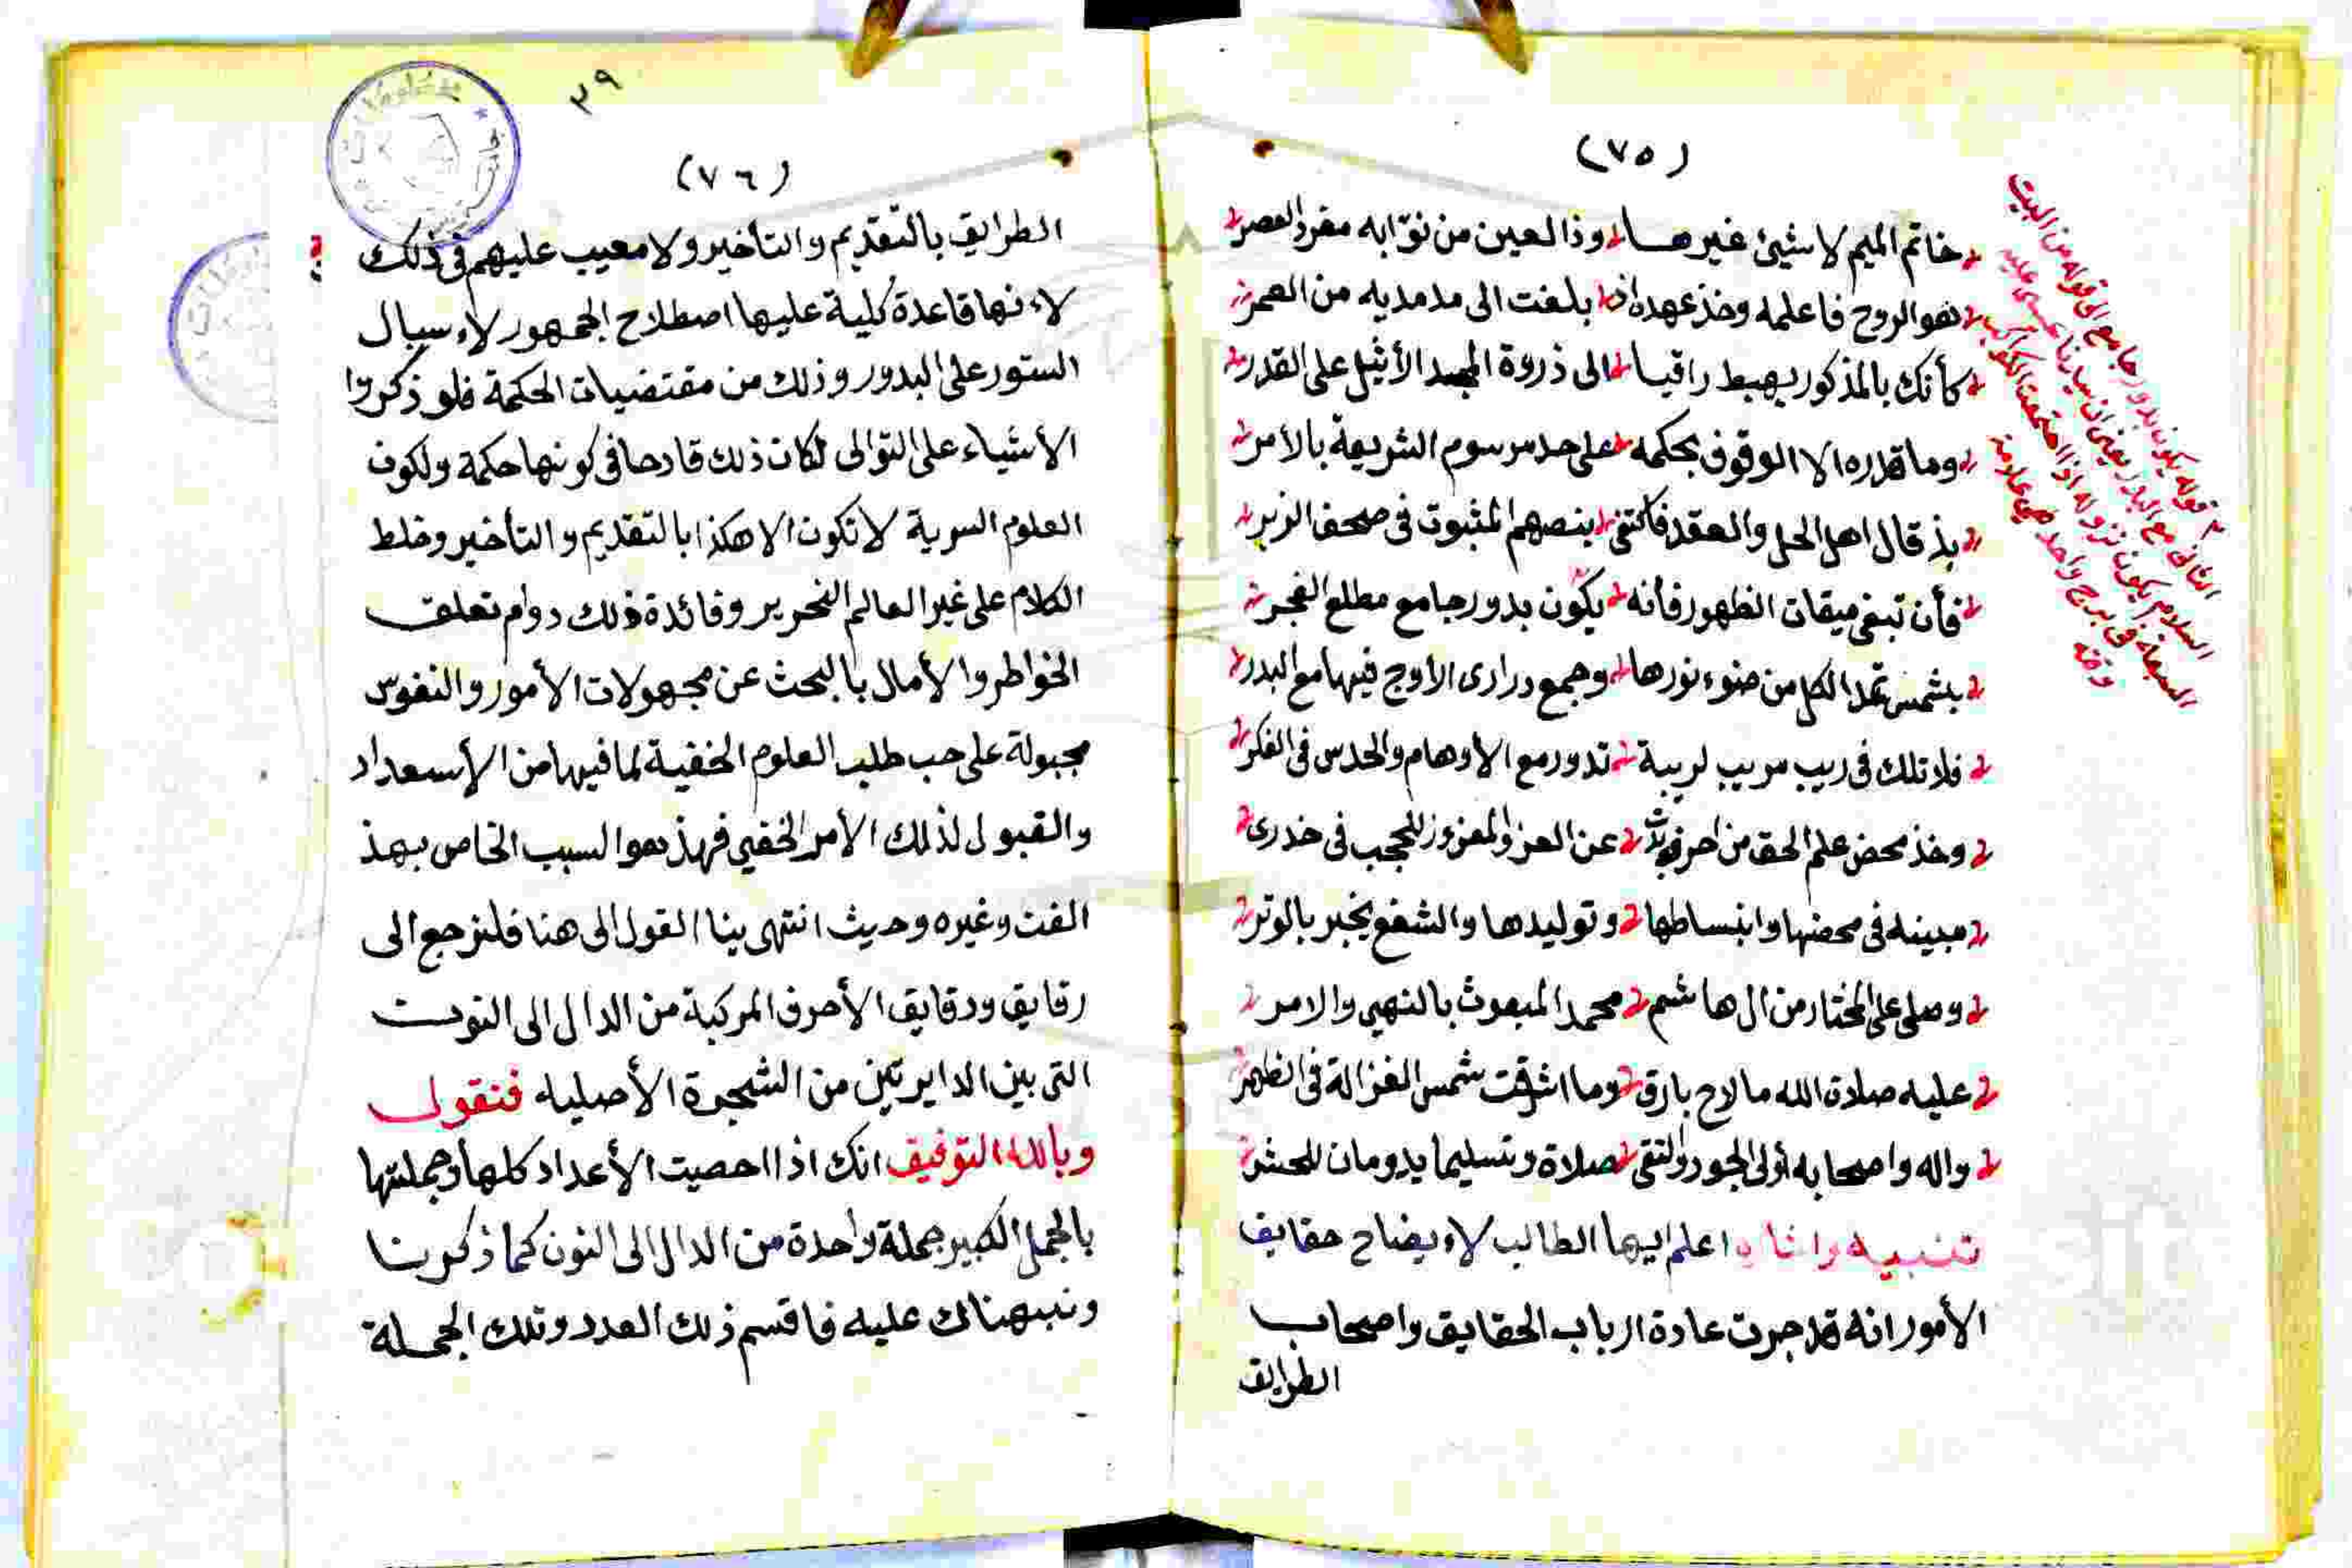 (٧٥)
خاتم الميم لا شيئ غيرها وذا العين من نوّابه مفرد العصر
هو الروح فاعلمه وخذ عهده اذا بلغت الى مد مديه من العمر
كأنك بالمذكور يهبط راقيا الى ذروة المجد الأثيل على القدر
وما قدره الا الوقوف بحكمه على حد مرسوم الشريعة بالأمر
بذ قال اهل الحل والعقد فاكتفى بنصهم المثبوت فى صحف الزبر
فأن تبغ ميقات الظهور فأنه يكون بدور جامع مطلع الفجر
بشمس تمد الكل من ضوء نورها وجمع درارى الاوج فيها مع البدر
فلا تلك فى ريب مريب لريبة تدور مع الأوهام والحدس فى الفكر
وخذ محض علم الحق من احرف عن العز والمعزوز للحجب فى خدرى
مبينه فى محضها وانبساطها وتوليدها والشفع يخبر بالوتر
وصلى على المختار من ال هاشم محمد المبعوث بالنهي والامر
عليه صلاة الله ما لاح بارق وما اشرقت شمس الغزالة فى الظهر
واله واصحابه أولى الجود والتقى صلاة وتسليما يدومان للحشر
تنبيه واشاره اعلم ايها الطالب لاءيضاح حقايق
الأمور انه قد جرت عادة ارباب الحقايق واصحاب
الطرايق
قوله يكون بدور جامع الى قوله من البيت
الثانى مع البدر يعنى ان سيدنا عيسى عليه
السلام يكون نزوله اذا اجتمعت الكواكب
السبعة فى برج واحد فهى علامة
وقته
٣٩
(٧٦)
الطرايق بالتقديم والتأخير ولا معيب عليهم فى ذلك
لاءنها قاعدة كلية عليها اصطلاح الجمهور لاءسبال
الستور على البدور وذلك من مقتضيات الحكمة فلو ذكروا
الأشياء على التوالى لكان ذلك قادحا فى كونها حكمة ولكون
العلوم السرية لا تكون الا هكذا بالتقديم والتأخير وخلط
الكلام على غير العالم النحرير وفائدة ذلك دوام تعلق
الخواطر والأمال بالبحث عن مجهولات الأمور والنفوس
مجبولة على حب طلب العلوم الخفية لما فيها من الأسعداد
والقبول لذلك الأمر الخفي فهذ هو السبب الخاص بهذ
الفن وغيره وحيث انتهى بينا القول الى هنا فلنرجع الى
رقايق ودقايق الأحرف المركبة من الدال الى النون
التى بين الدايرتين من الشجرة الأصليه فنقول
وبالله التوفيق انك اذا احصيت الأعداد كلها وجملتها
بالجمل الكبير جملة واحدة من الدال الى النون كما ذكرنا
ونبهناك عليه فاقسم ذلك العدد وتلك الجملة